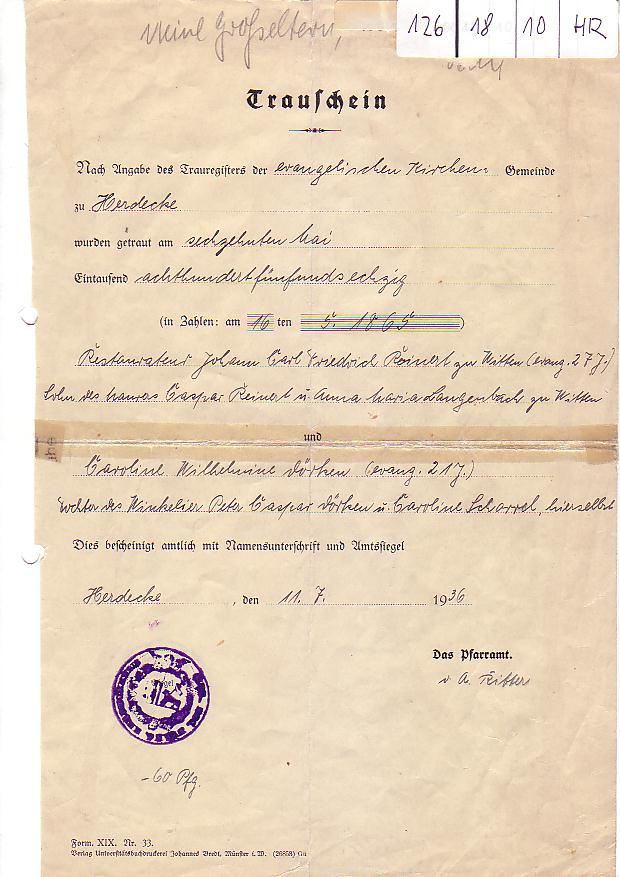 126 18 10 HR
Meine Großeltern,
Trauschein
Nach Angabe des Trauregisters der evangelischen Kirchen- Gemeinde
zu Herdecke
wurden getraut am sechzehnten Mai
Eintausend achthundertfünfundsechzig
(in Zahlen: am 16 ten 5. 1865)
Restaurateur Johann Carl Friedrich Reinert zu Witten (evang. 27 J.)
Sohn des Caspar Reinert u. Anna Maria Langenbach zu Witten
und
Caroline Wilhelmine Dörken (evang. 21 J.)
Tochter des Winkelier Peter Caspar Dörken u. Caroline Scharrel, hierselbst
Dies bescheinigt amtlich mit Namensunterschrift und Amtssiegel
Herdecke, den 11. 7. 1936
Das Pfarramt.
v A. Ritter
-60 Pfg.
Form. XIX. Nr. 33.
Verlag Universitätsbuchdruckerei Johannes Bredt, Münster i. W. (26858) Gu